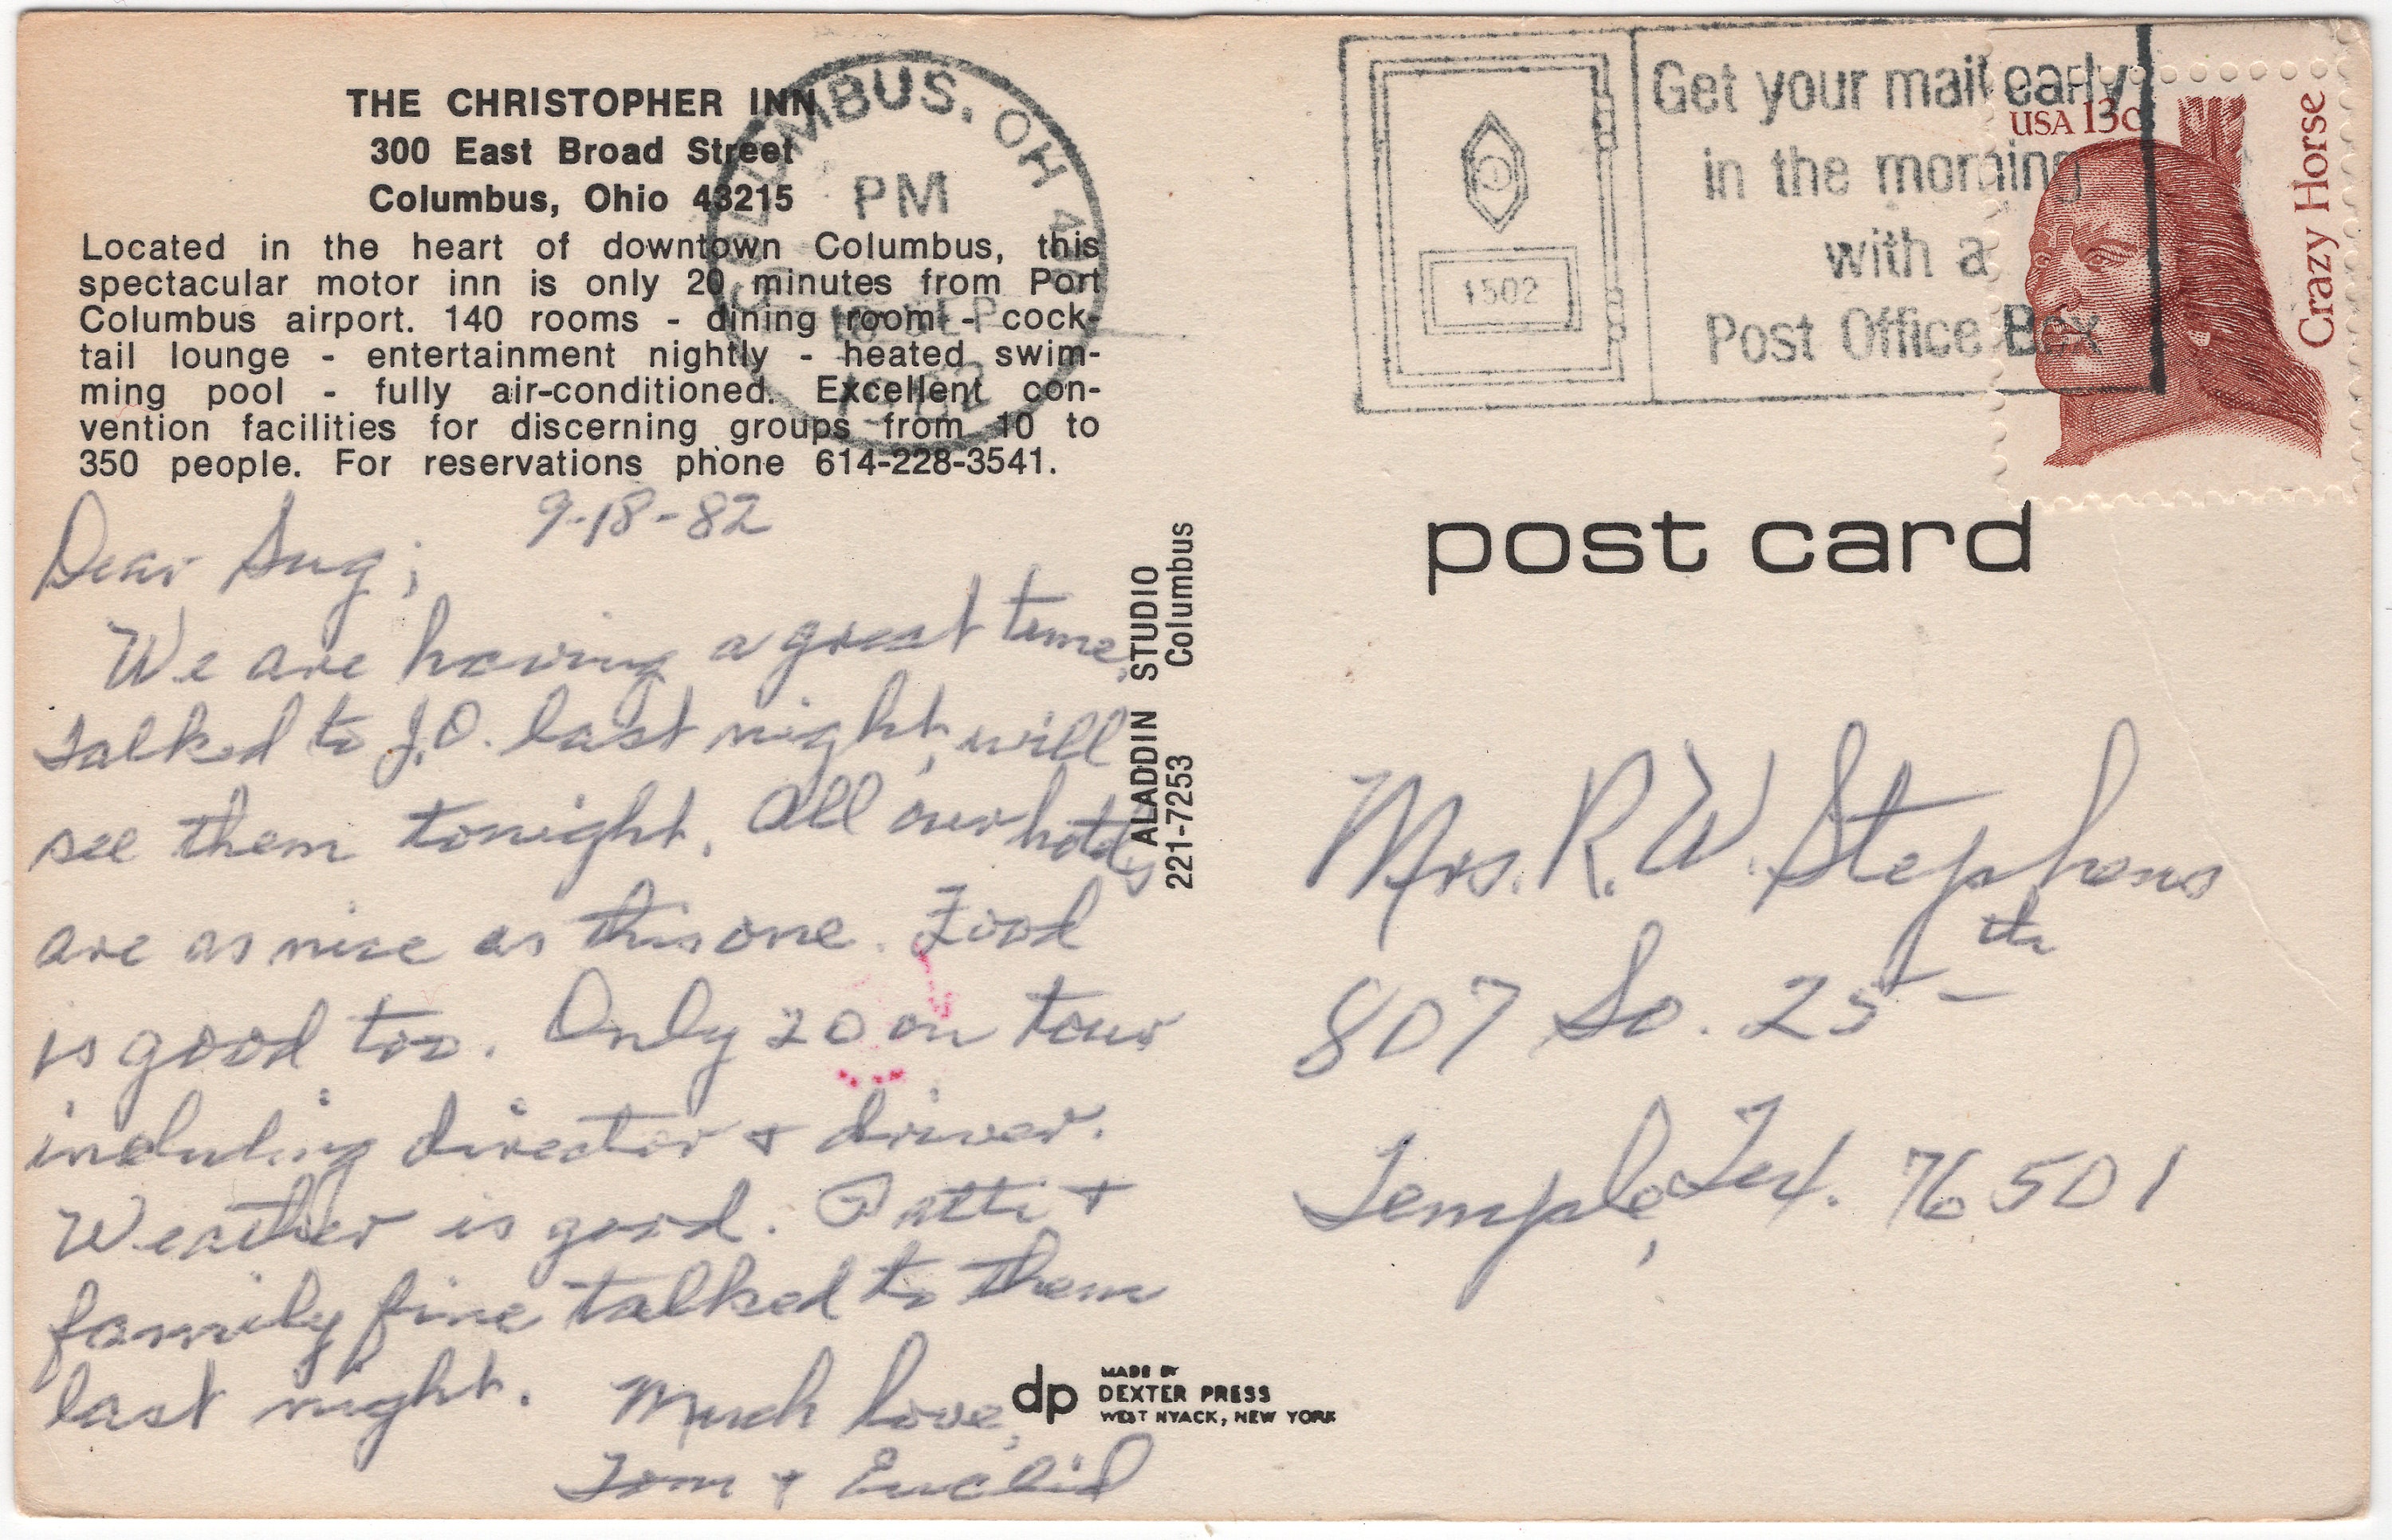 THE CHRISTOPHER INN
300 East Broad Street
Columbus, Ohio 43215
Located in the heart of downtown Columbus, this
spectacular motor inn is only 20 minutes from Port
Columbus airport. 140 rooms - dining room - cock-
tail lounge - entertainment nightly - heated swim-
ming pool - fully air-conditioned. Excellent con-
vention facilities for discerning groups from 10 to
350 people. For reservations phone 614-228-3541.
COLUMBUS, OH
PM
18 SEP
1982
9-18-82
Dear Sug;
We are having a great time,
talked to J.O. last night, will
see them tonight. All our hotels
are as nice as this one. Food
is good too. Only 20 on tour
including director + driver.
Weather is good. Patti +
family fine talked to them
last night. Much love,
Tom + Euclid
ALADDIN STUDIO
221-7253 Columbus
dp
MADE BY
DEXTER PRESS
WEST NYACK, NEW YORK
1502
Get your mail early
in the morning
with a
Post Office Box
USA 13c
Crazy Horse
post card
Mrs. R. W. Stephens
807 So. 25th
Temple, Tex. 76501